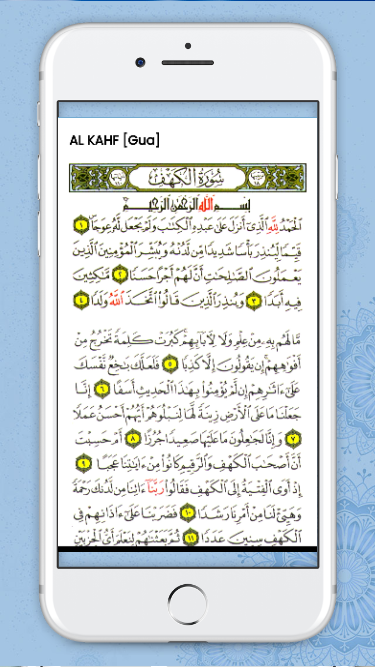 AL KAHF [Gua]
سُورَةُ الْكَهْفِ
بِسْمِ اللَّهِ الرَّحْمَٰنِ الرَّحِيمِ
الْحَمْدُ لِلَّهِ الَّذِي أَنزَلَ عَلَىٰ عَبْدِهِ الْكِتَٰبَ وَلَمْ يَجْعَل لَّهُ عِوَجَا ۜ ١
قَيِّمًا لِّيُنذِرَ بَأْسًا شَدِيدًا مِّن لَّدُنْهُ وَيُبَشِّرَ الْمُؤْمِنِينَ الَّذِينَ
يَعْمَلُونَ الصَّٰلِحَٰتِ أَنَّ لَهُمْ أَجْرًا حَسَنًا ٢ مَّٰكِثِينَ
فِيهِ أَبَدًا ٣ وَيُنذِرَ الَّذِينَ قَالُوا اتَّخَذَ اللَّهُ وَلَدًا ٤
مَّا لَهُم بِهِ مِنْ عِلْمٍ وَلَا لِآبَائِهِمْ كَبُرَتْ كَلِمَةً تَخْرُجُ مِنْ
أَفْوَٰهِهِمْ إِن يَقُولُونَ إِلَّا كَذِبًا ٥ فَلَعَلَّكَ بَٰخِعٌ نَّفْسَكَ
عَلَىٰ ءَاثَٰرِهِمْ إِن لَّمْ يُؤْمِنُوا بِهَٰذَا الْحَدِيثِ أَسَفًا ٦ إِنَّا
جَعَلْنَا مَا عَلَى الْأَرْضِ زِينَةً لَّهَا لِنَبْلُوَهُمْ أَيُّهُمْ أَحْسَنُ عَمَلًا
٧ وَإِنَّا لَجَٰعِلُونَ مَا عَلَيْهَا صَعِيدًا جُرُزًا ٨ أَمْ حَسِبْتَ
أَنَّ أَصْحَٰبَ الْكَهْفِ وَالرَّقِيمِ كَانُوا مِنْ ءَايَٰتِنَا عَجَبًا ٩
إِذْ أَوَى الْفِتْيَةُ إِلَى الْكَهْفِ فَقَالُوا رَبَّنَا ءَاتِنَا مِن لَّدُنكَ رَحْمَةً
وَهَيِّئْ لَنَا مِنْ أَمْرِنَا رَشَدًا ١٠ فَضَرَبْنَا عَلَىٰ ءَاذَانِهِمْ فِي
الْكَهْفِ سِنِينَ عَدَدًا ١١ ثُمَّ بَعَثْنَٰهُمْ لِنَعْلَمَ أَيُّ الْحِزْبَيْنِ